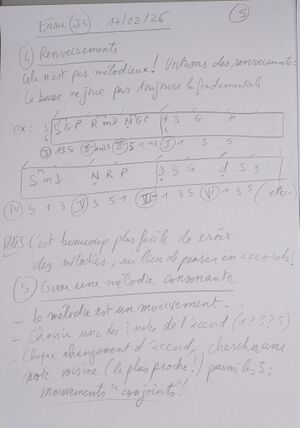 17/02/26
5
4 Renversements
Cela n'est pas mélodieux ! Utilisons des renversements :
La basse ne joue pas toujours la fondamentale
ex :
S G P R m D N G P S G P
I 1 3 5 5 1 I 1 3 5
S m D N R P D S G d S g
IV 5 1 3 V 3 5 1 VI 1 3 5 vi 1 3 5 ( etc..
C'est beaucoup plus facile de créer
des mélodies, au lieu de penser en accords !
5 Créer une mélodie consonante
- La mélodie est un mouvement...
- Choisir une des 3 note de l'accord (1? 3? 5)
- Chaque changement d'accord, chercher une
note voisine (le plus proche !) parmi les 3 ;
mouvements "conjoints" !